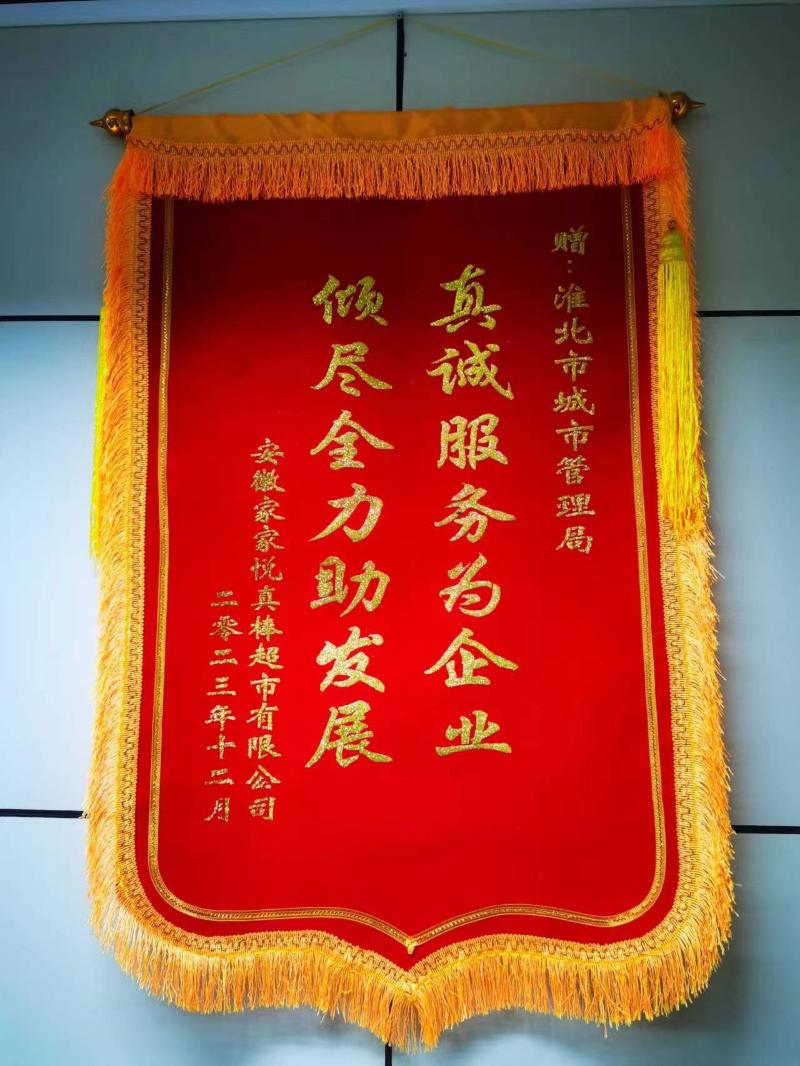 赠：淮北市城市管理局
真诚服务为企业
倾尽全力助发展
安徽家家悦真棒超市有限公司
二零二三年十二月